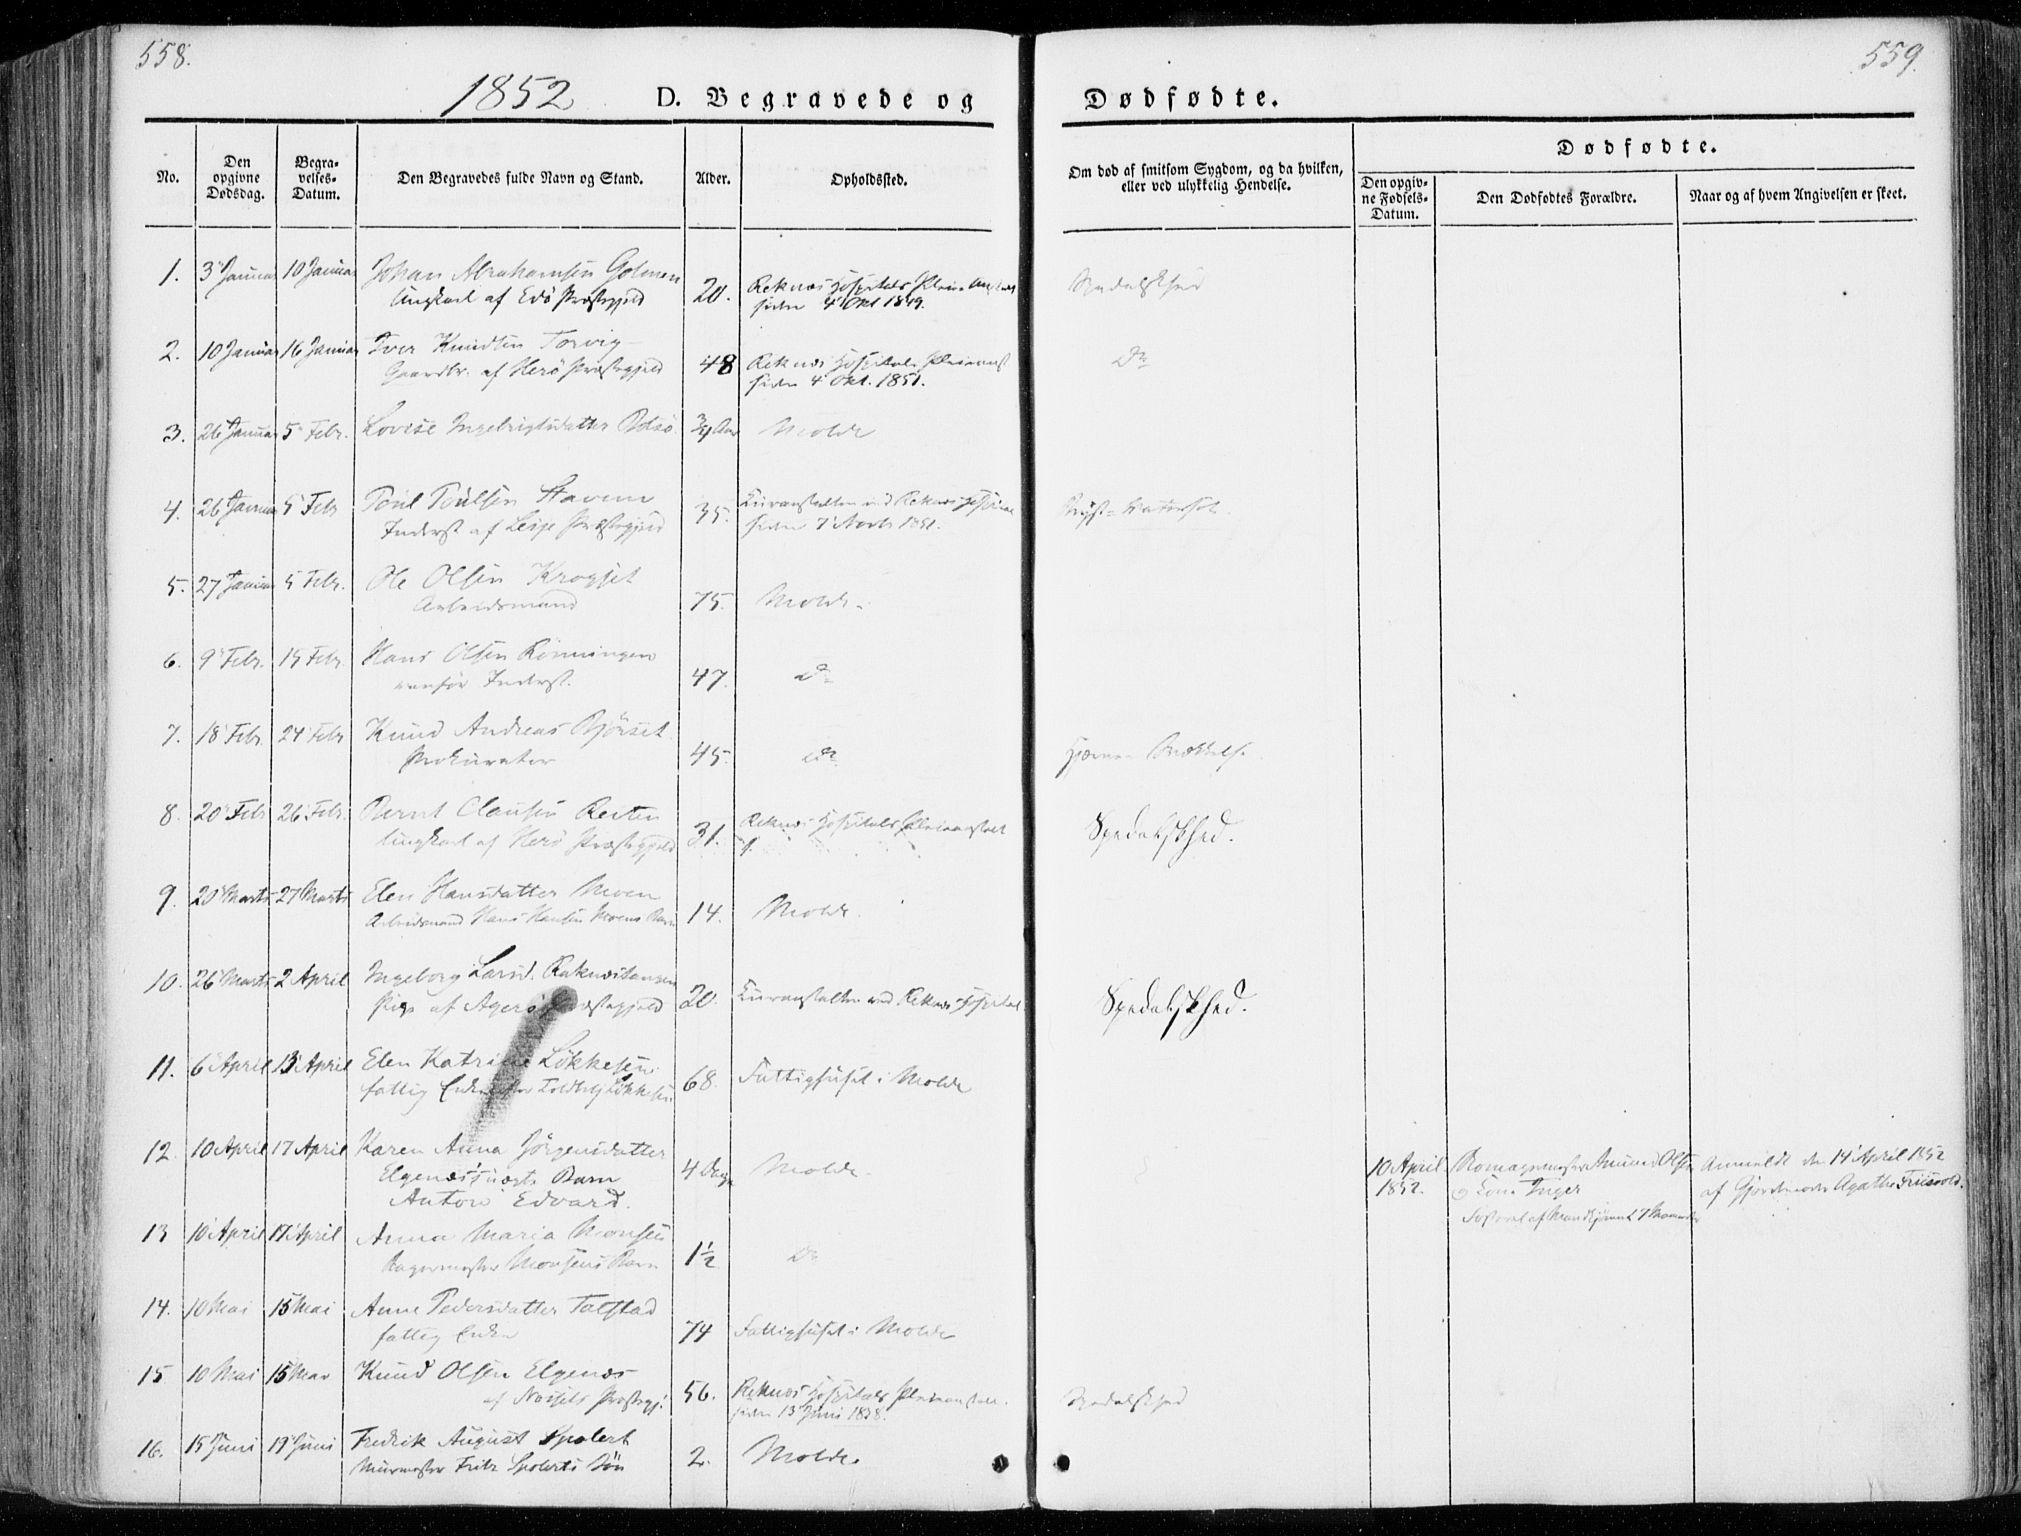 558.
1852
D. Begravede og
No.
Den opgivne Dødsdag.
Begravelses-Datum.
Den Begravedes fulde Navn og Stand.
Alder.
Opholdssted.
1. 3 Januar 10 Januar Johan Abrahamsen Golmen
Ungkarl af Edø Præstegjeld 20. Reknæs Hospitals Pleie Anstalt
siden 4 Okt 1849.
2. 10 Januar 16 Januar Iver Knudsen Torvig
Gaardbr. af Herø Præstegjeld 48 Reknæs Hospitals Pleieanst
siden 4 Okt. 1851.
3. 26 Januar 5 Febr. Lovise Ingebrigtsdatter Bolsø 3/4 Aar Molde
4. 26 Januar 5 Febr Poul Poulsen Stavem
Inderst af Lesje Præstegjeld 35. Kuranstalten ved Reknæs Hospital
siden 7 Novb 1851.
5. 27 Januar 5 Febr. Ole Olsen Krogset
Arbeidsmand 75. Molde.
6. 9 Febr. 15 Febr. Hans Olsen Rønningen
vanfør Inderst. 47. Do
7. 18 Febr 24 Febr Knud Andreas Bjørset
Prokurator 45. Do
8. 20 Febr 26 Febr. Bernt Clausen Resten
Ungkarl af Herø Præstegjeld 31. Reknæs Hospitals Pleieanstalt
9. 20 Marts 27 Marts Elen Hansdatter Moen
Arbeidsmand Hans Hansen Moens Barn 14. Molde.
10. 26 Marts 2 April Ingeborg Larsd. Reknæstangen
Pige af Agerø Præstegjeld 20. Kuranstalten ved Reknæs Hospital
11. 6 April 13 April Elen Katrine Løkkesen
fattig Enke efter Toldbetj Løkkesen 68. Fattighuset i Molde
12. 10 April 17 April Karen Anna Jörgensdatter
Elgenæs's uægte Barn 4 Dage Molde.
Anton Edvard.
13 10 April 17 April Anna Maria Monsen
Bagermester Monsens Barn 1½ Do
14. 10 Mai 15 Mai Anne Pedersdatter Talstad
fattig Enke 74 Fattighuset i Molde
15 10 Mai 15 Mai Knud Olsen Elgenæs
af Nessets Præstegj: 56. Reknæs Hospitals Pleieanstalt.
siden 13 Juni 1838.
16. 15 Juni 19 Juni Fredrik August Spolert
Muurmester Fritz Spolerts Søn 2. Molde.
559.
Dødfødte.
Om død af smitsom Sygdom, og da hvilken, eller ved ulykkelig Hendelse.
Dødfødte.
Den opgivne Fødsels-Datum.
Den Dødfødtes Forældre.
Naar og af hvem Angivelsen er skeet.
Spedalskhed
Do
Bryst-Vatersot.
Hjerne-Betændelse
Spedalskhed.
Spedalskhed.
10 April 1852.
Olsen
Kone Inger
Fosteret af Mandkjønnet 7 Maaneder
Anmeldt den 14 April 1852
af Gjordemoder Agathe Friisvold.
Spedalskhed